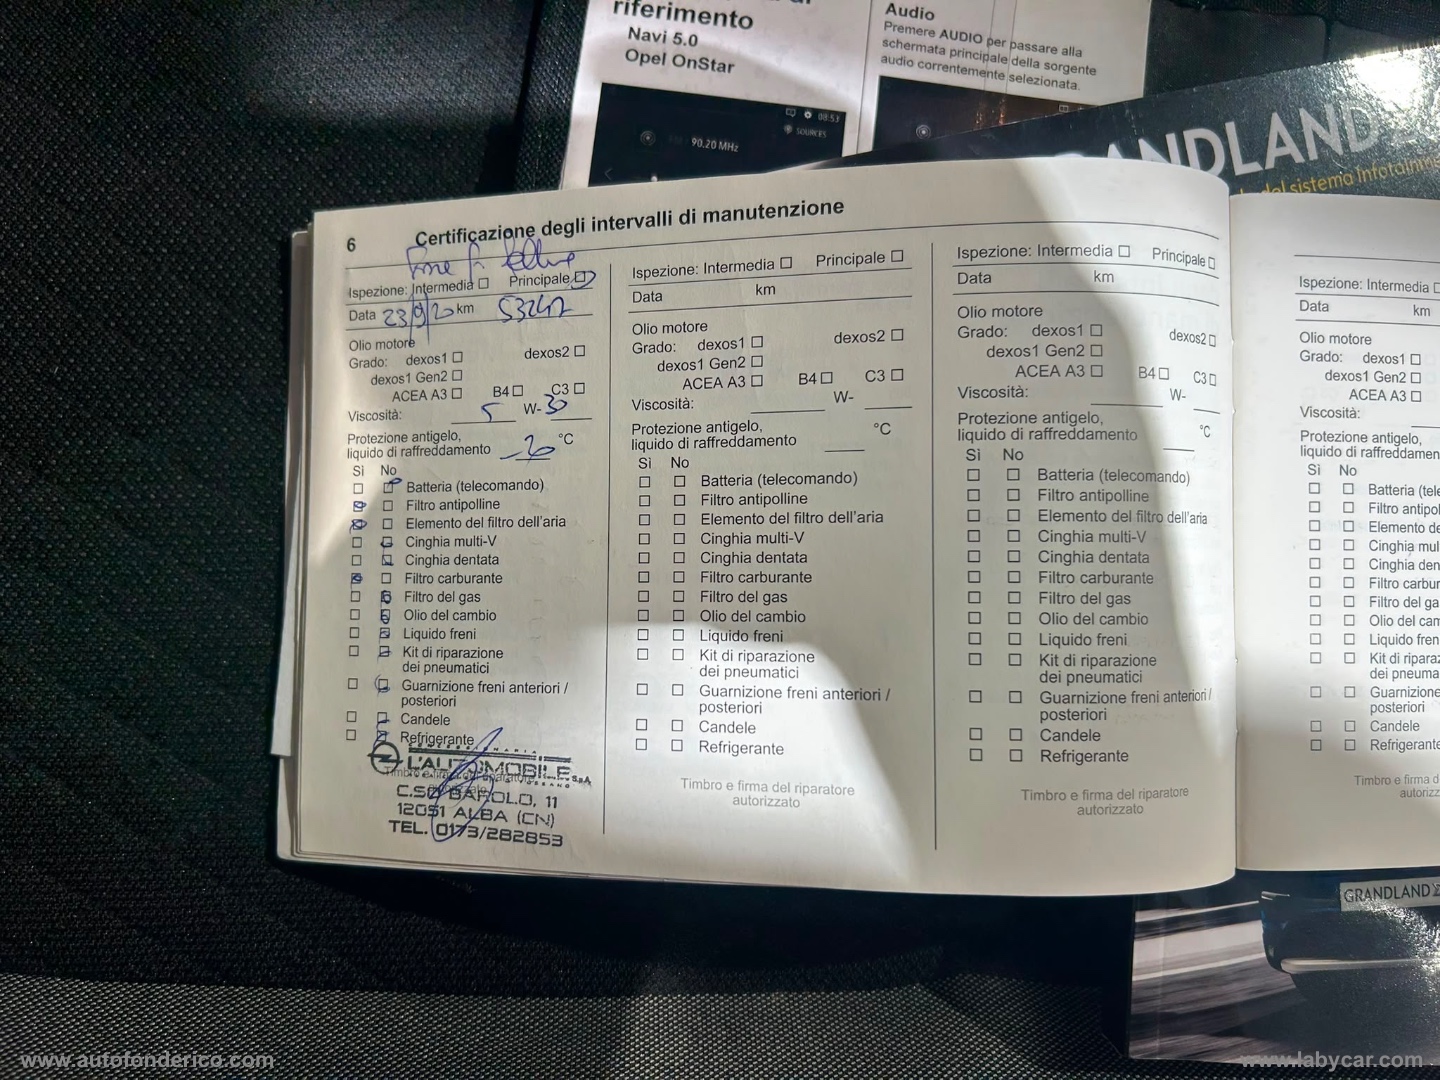 riferimento
Navi 5.0
Opel OnStar
90.20 MHz
08:53
SOURCES
Audio
Premere AUDIO per passare alla
schermata principale della sorgente
audio correntemente selezionata.
GRANDLAND X
del sistema Infotainment
6 Certificazione degli intervalli di manutenzione
Ispezione: Intermedia Principale
Data 23/9/20 km 53242
Olio motore
Grado: dexos1 dexos2
dexos1 Gen2
ACEA A3 B4 C3
Viscosità: 5 W- 30
Protezione antigelo,
liquido di raffreddamento °C
Sì No
Batteria (telecomando)
Filtro antipolline
Elemento del filtro dell'aria
Cinghia multi-V
Cinghia dentata
Filtro carburante
Filtro del gas
Olio del cambio
Liquido freni
Kit di riparazione
dei pneumatici
Guarnizione freni anteriori /
posteriori
Candele
Refrigerante
CONCESSIONARIA
L'AUTOMOBILE S.p.A.
C.SO BAROLO, 11
12051 ALBA (CN)
TEL. 0173/282853
Ispezione: Intermedia Principale
Data km
Olio motore
Grado: dexos1 dexos2
dexos1 Gen2
ACEA A3 B4 C3
Viscosità: W-
Protezione antigelo,
liquido di raffreddamento °C
Sì No
Batteria (telecomando)
Filtro antipolline
Elemento del filtro dell'aria
Cinghia multi-V
Cinghia dentata
Filtro carburante
Filtro del gas
Olio del cambio
Liquido freni
Kit di riparazione
dei pneumatici
Guarnizione freni anteriori /
posteriori
Candele
Refrigerante
Timbro e firma del riparatore
autorizzato
Ispezione: Intermedia Principale
Data km
Olio motore
Grado: dexos1 dexos2
dexos1 Gen2
ACEA A3 B4 C3
Viscosità: W-
Protezione antigelo,
liquido di raffreddamento °C
Sì No
Batteria (telecomando)
Filtro antipolline
Elemento del filtro dell'aria
Cinghia multi-V
Cinghia dentata
Filtro carburante
Filtro del gas
Olio del cambio
Liquido freni
Kit di riparazione
dei pneumatici
Guarnizione freni anteriori /
posteriori
Candele
Refrigerante
Timbro e firma del riparatore
autorizzato
Ispezione: Intermedia
Data km
Olio motore
Grado: dexos1
dexos1 Gen2
ACEA A3
Viscosità:
Protezione antigelo,
liquido di raffreddamen
Sì No
Batteria (tele
Filtro antipol
Elemento de
Cinghia mul
Cinghia den
Filtro carbur
Filtro del ga
Olio del cam
Liquido fren
Kit di ripara
dei pneuma
Guarnizione
posteriori
Candele
Refrigerante
Timbro e firma d
autorizz
GRANDLAND X
www.autofonderico.com
www.labycar.com